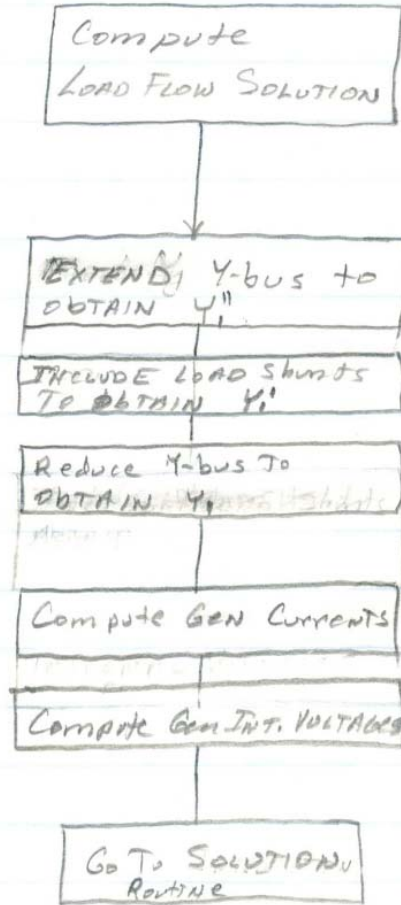 Compute
LOAD FLOW SOLUTION
EXTEND Y-bus to
ObTAIN Y₁"
INCLUDE LOAD Shunts
TO ObTAIN Y₁'
Reduce Y-bus To
ObTAIN Y₁
Compute GEN CURRENTS
Compute Gen INT. VOLTAGES
GO TO SOLUTION
Routine